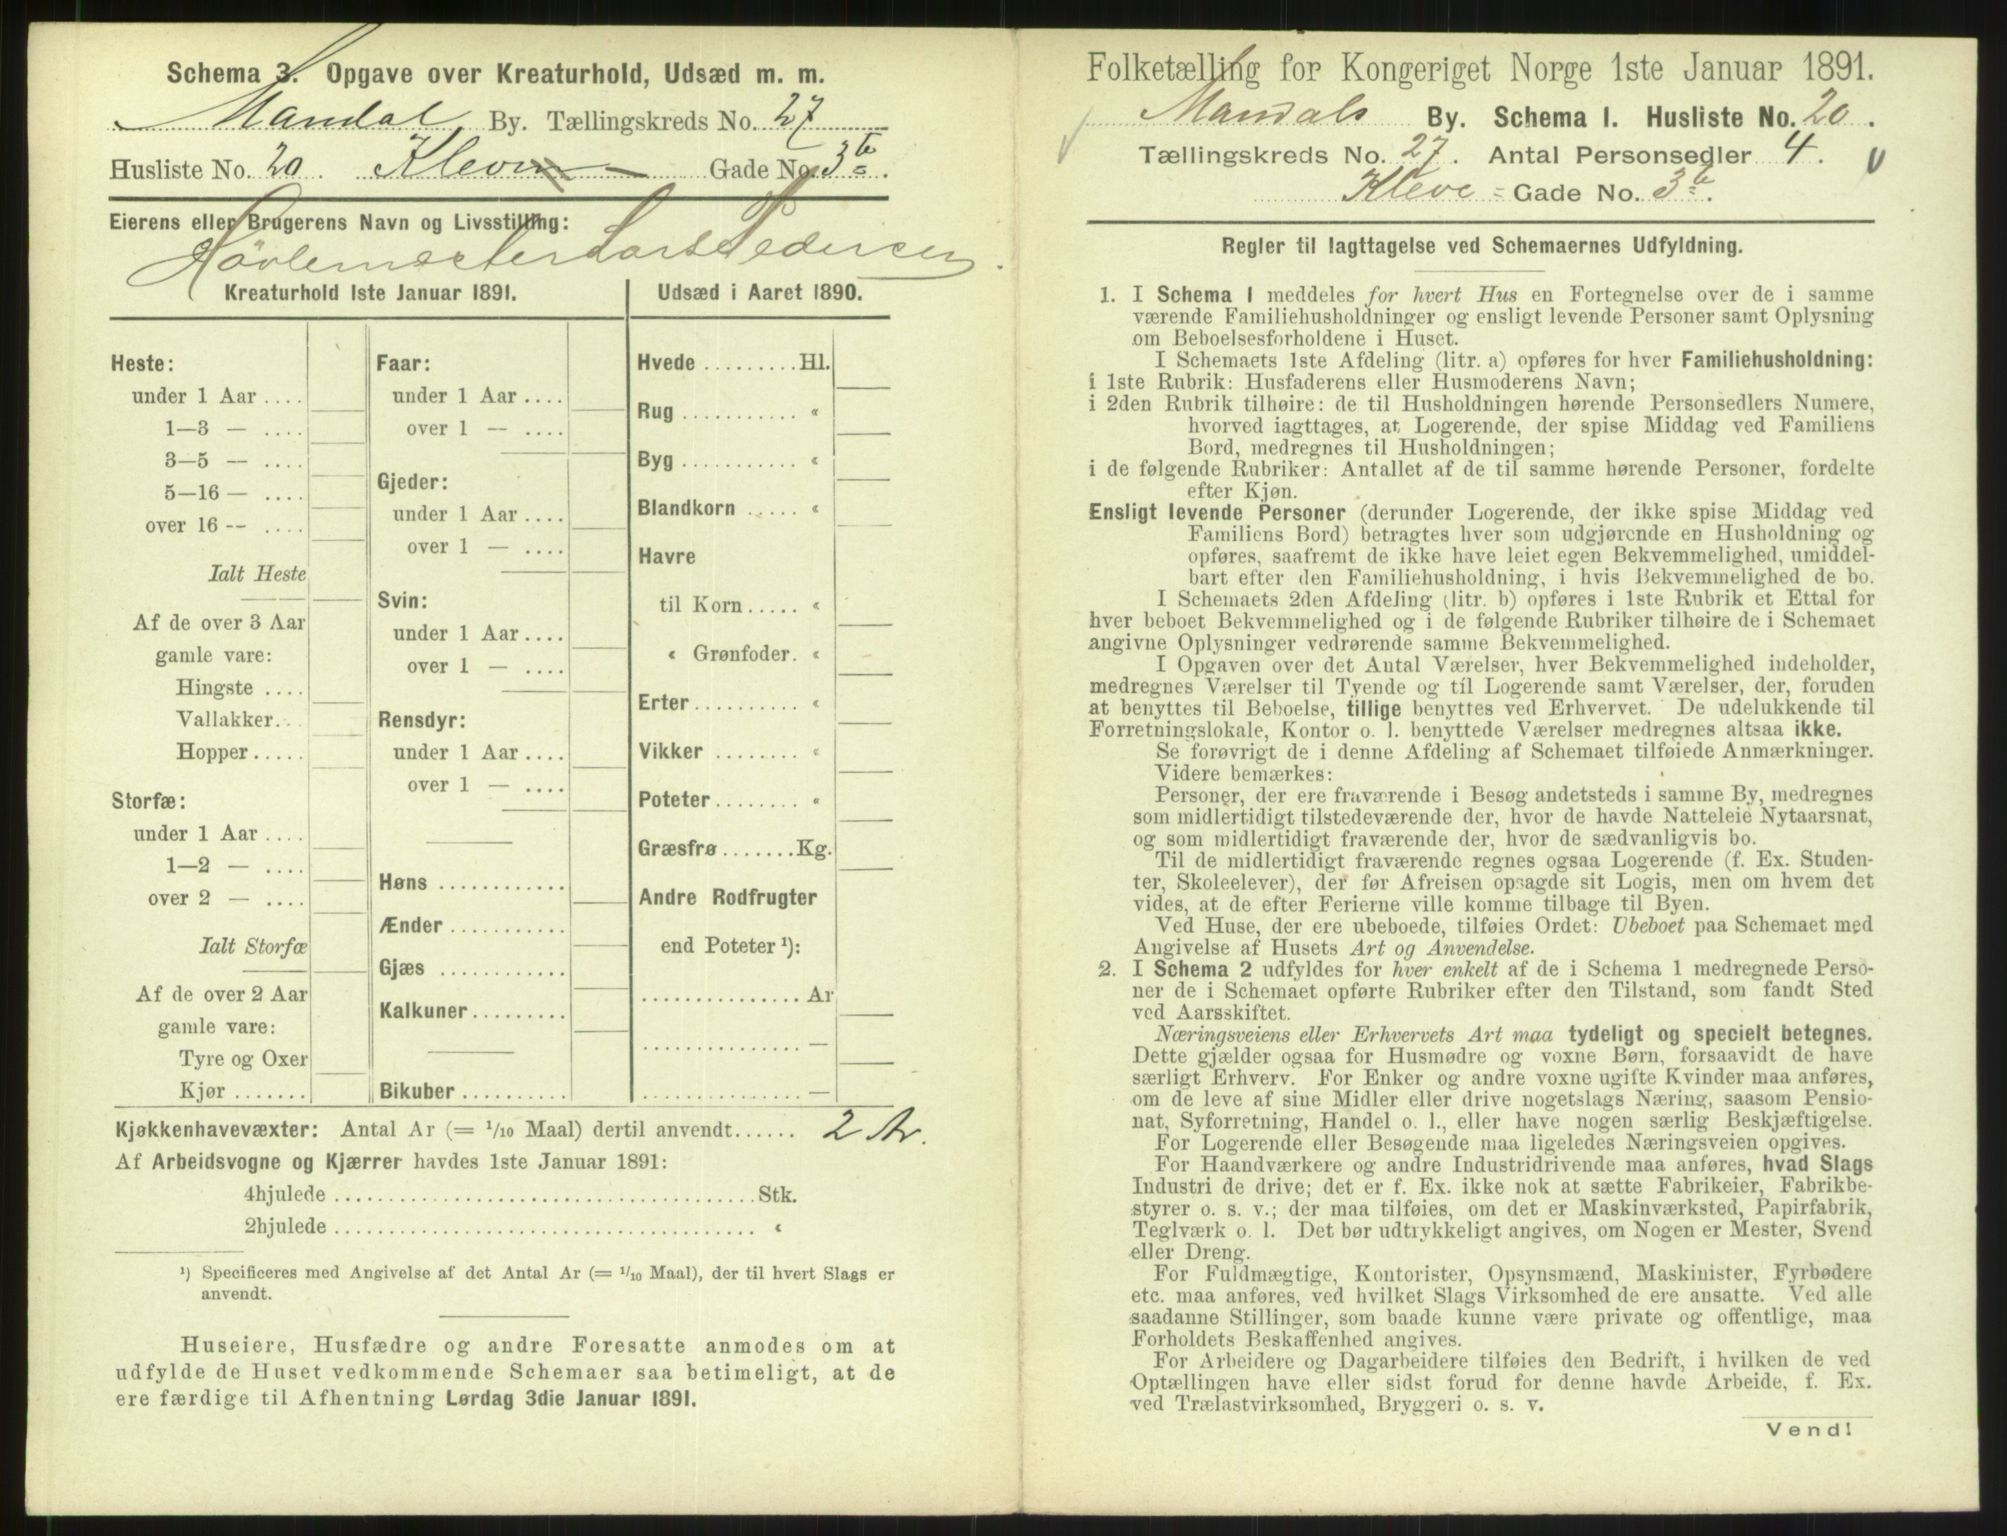 Schema 3. Opgave over Kreaturhold, Udsæd m. m.
Mandal By. Tællingskreds No. 27
Husliste No. 20. Gade No. 3b.
Eierens eller Brugerens Navn og Livsstilling:
Høvlemester Lars Pedersen.
Kreaturhold 1ste Januar 1891.
Heste:
under 1 Aar ....
1—3 — ....
3—5 — ....
5—16 — ....
over 16 -- ....
Ialt Heste
Af de over 3 Aar
gamle vare:
Hingste ....
Vallakker...
Hopper.....
Storfæ:
under 1 Aar ....
1—2 — ....
over 2 — ....
Ialt Storfæ
Af de over 2 Aar
gamle vare:
Tyre og Oxer
Kjør .......
Faar:
under 1 Aar ....
over 1 — ....
Gjeder:
under 1 Aar ....
over 1 — ....
Svin:
under 1 Aar ....
over 1 — ....
Rensdyr:
under 1 Aar ....
over 1 — ....
Høns ............
Ænder ...........
Gjæs ............
Kalkuner.........
Bikuber ..........
Udsæd i Aaret 1890.
Hvede .........Hl.
Rug ........... «
Byg ........... «
Blandkorn ..... «
Havre
til Korn..... «
« Grønfoder. «
Erter.......... «
Vikker ........ «
Poteter........ «
Græsfrø.......Kg.
Andre Rodfrugter
end Poteter ¹):
............... Ar
............... —
............... —
Kjøkkenhavevæxter: Antal Ar (= 1/10 Maal) dertil anvendt...... 2 Ar.
Af Arbeidsvogne og Kjærrer havdes 1ste Januar 1891:
4hjulede ........................................ Stk.
2hjulede ........................................ «
¹) Specificeres med Angivelse af det Antal Ar (= 1/10 Maal), der til hvert Slags er
anvendt.
Huseiere, Husfædre og andre Foresatte anmodes om at
udfylde de Huset vedkommende Schemaer saa betimeligt, at de
ere færdige til Afhentning Lørdag 3die Januar 1891.
Folketælling for Kongeriget Norge 1ste Januar 1891.
Mandals By. Schema I. Husliste No. 20.
Tællingskreds No. 27. Antal Personsedler 4.
Kleve - Gade No. 3b.
Regler til Iagttagelse ved Schemaernes Udfyldning.
1. I Schema 1 meddeles for hvert Hus en Fortegnelse over de i samme
værende Familiehusholdninger og ensligt levende Personer samt Oplysning
om Beboelsesforholdene i Huset.
I Schemaets 1ste Afdeling (litr. a) opføres for hver Familiehusholdning:
i 1ste Rubrik: Husfaderens eller Husmoderens Navn;
i 2den Rubrik tilhøire: de til Husholdningen hørende Personsedlers Numere,
hvorved iagttages, at Logerende, der spise Middag ved Familiens
Bord, medregnes til Husholdningen;
i de følgende Rubriker: Antallet af de til samme hørende Personer, fordelte
efter Kjøn.
Ensligt levende Personer (derunder Logerende, der ikke spise Middag ved
Familiens Bord) betragtes hver som udgjørende en Husholdning og
opføres, saafremt de ikke have leiet egen Bekvemmelighed, umiddel-
bart efter den Familiehusholdning, i hvis Bekvemmelighed de bo.
I Schemaets 2den Afdeling (litr. b) opføres i 1ste Rubrik et Ettal for
hver beboet Bekvemmelighed og i de følgende Rubriker tilhøire de i Schemaet
angivne Oplysninger vedrørende samme Bekvemmelighed.
I Opgaven over det Antal Værelser, hver Bekvemmelighed indeholder,
medregnes Værelser til Tyende og til Logerende samt Værelser, der, foruden
at benyttes til Beboelse, tillige benyttes ved Erhvervet. De udelukkende til
Forretningslokale, Kontor o. l. benyttede Værelser medregnes altsaa ikke.
Se forøvrigt de i denne Afdeling af Schemaet tilføiede Anmærkninger.
Videre bemærkes:
Personer, der ere fraværende i Besøg andetsteds i samme By, medregnes
som midlertidigt tilstedeværende der, hvor de havde Natteleie Nytaarsnat,
og som midlertidigt fraværende der, hvor de sædvanligvis bo.
Til de midlertidigt fraværende regnes ogsaa Logerende (f. Ex. Studen-
ter, Skoleelever), der før Afreisen opsagde sit Logis, men om hvem det
vides, at de efter Ferierne ville komme tilbage til Byen.
Ved Huse, der ere ubeboede, tilføies Ordet: Ubeboet paa Schemaet med
Angivelse af Husets Art og Anvendelse.
2. I Schema 2 udfyldes for hver enkelt af de i Schema 1 medregnede Perso-
ner de i Schemaet opførte Rubriker efter den Tilstand, som fandt Sted
ved Aarsskiftet.
Næringsveiens eller Erhvervets Art maa tydeligt og specielt betegnes.
Dette gjælder ogsaa for Husmødre og voxne Børn, forsaavidt de have
særligt Erhverv. For Enker og andre voxne ugifte Kvinder maa anføres,
om de leve af sine Midler eller drive nogetslags Næring, saasom Pensio-
nat, Syforretning, Handel o. l., eller have nogen særlig Beskjæftigelse.
For Logerende eller Besøgende maa ligeledes Næringsveien opgives.
For Haandværkere og andre Industridrivende maa anføres, hvad Slags
Industri de drive; det er f. Ex. ikke nok at sætte Fabrikeier, Fabrikbe-
styrer o. s. v.; der maa tilføies, om det er Maskinværksted, Papirfabrik,
Teglværk o. l. Det bør udtrykkeligt angives, om Nogen er Mester, Svend
eller Dreng.
For Fuldmægtige, Kontorister, Opsynsmænd, Maskinister, Fyrbødere
etc. maa anføres, ved hvilket Slags Virksomhed de ere ansatte. Ved alle
saadanne Stillinger, som baade kunne være private og offentlige, maa
Forholdets Beskaffenhed angives.
For Arbeidere og Dagarbeidere tilføies den Bedrift, i hvilken de ved
Optællingen have eller sidst forud for denne havde Arbeide, f. Ex.
ved Trælastvirksomhed, Bryggeri o. s. v.
Vend!